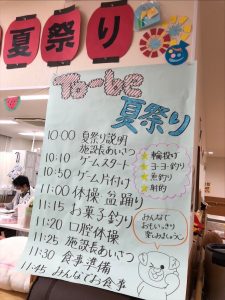 夏祭り
To-be
夏祭り
10:00 夏祭り説明
施設長あいさつ
10:10 ゲームスタート
10:50 ゲーム片付け
11:00 体操 盆踊り
11:15 お菓子釣り
11:20 口腔体操
11:25 施設長あいさつ
11:30 食事準備
11:45 みんなでお食事
★輪投げ
★ヨーヨー釣り
★魚釣り
★射的
みんなで
おもいっきり
楽しみましょう